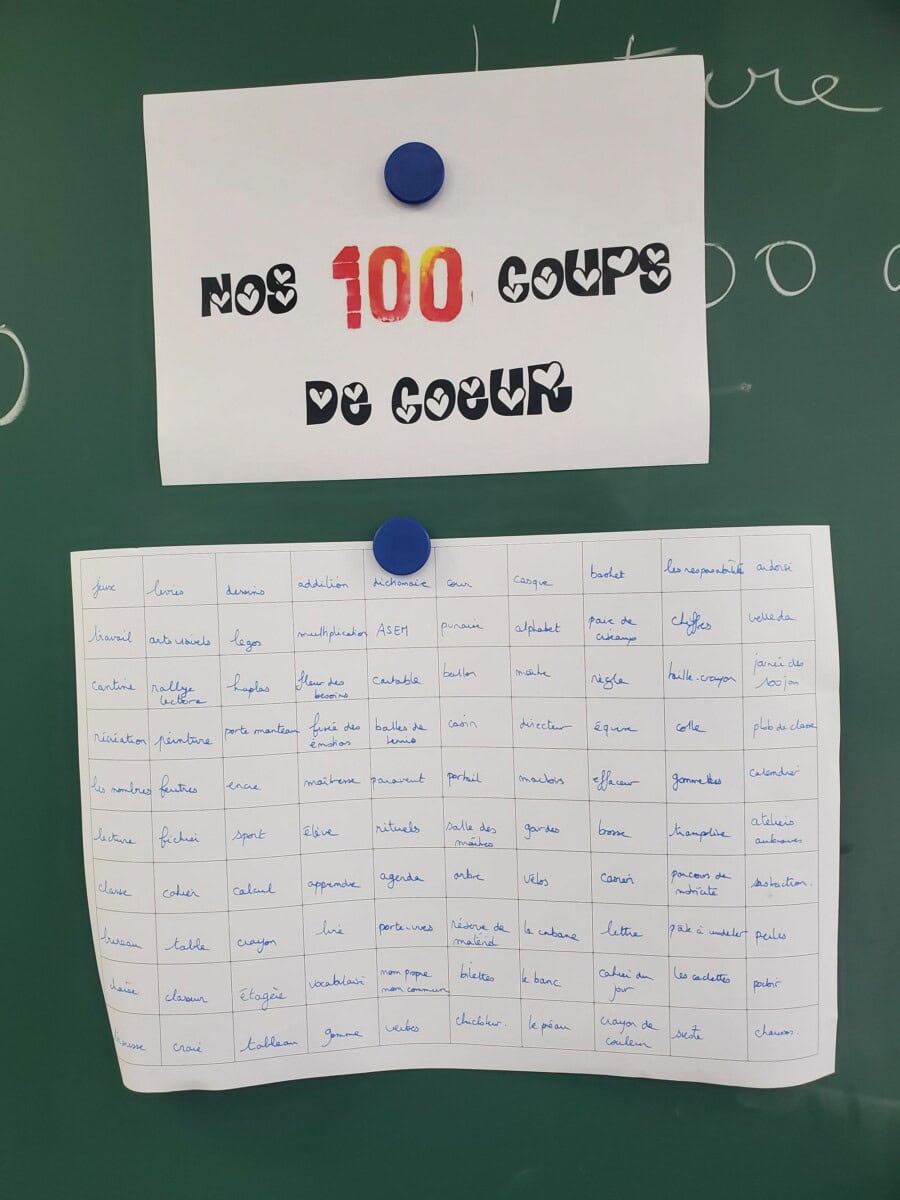 ure
NOS 100 COUPS
DE COEUR
00
jeux livres dessins addition dictionnaire cour casque bachet les responsabilité ardoise
travail arts visuels legos multiplication ASEM punaise alphabet paire de ciseaux chiffres velleda
cantine rallye lecture kaplas fleur des besoins cartable ballon maître règle taille-crayon journée des 100 jours
récréation peinture porte manteau fusée des émotions balles de tennis casier directeur équerre colle photo de classe
les nombres feutres encre maîtresse paravent portail effaceur gommettes calendrier
lecture fichier sport élève rituels salle des maîtres gardes bosse trampoline ateliers autonomes
classe cahier calcul apprendre agenda arbre vélos casier parcours de motricité soustraction.
bureau table crayon lire porte-vues réserve de matériel la cabane lettre pâte à modeler perles
chaise classeur étagère vocabulaire nom propre nom commun billettes le banc cahier du jour les cachettes
trousse craie tableau gomme verbes le préau crayon de couleur sieste